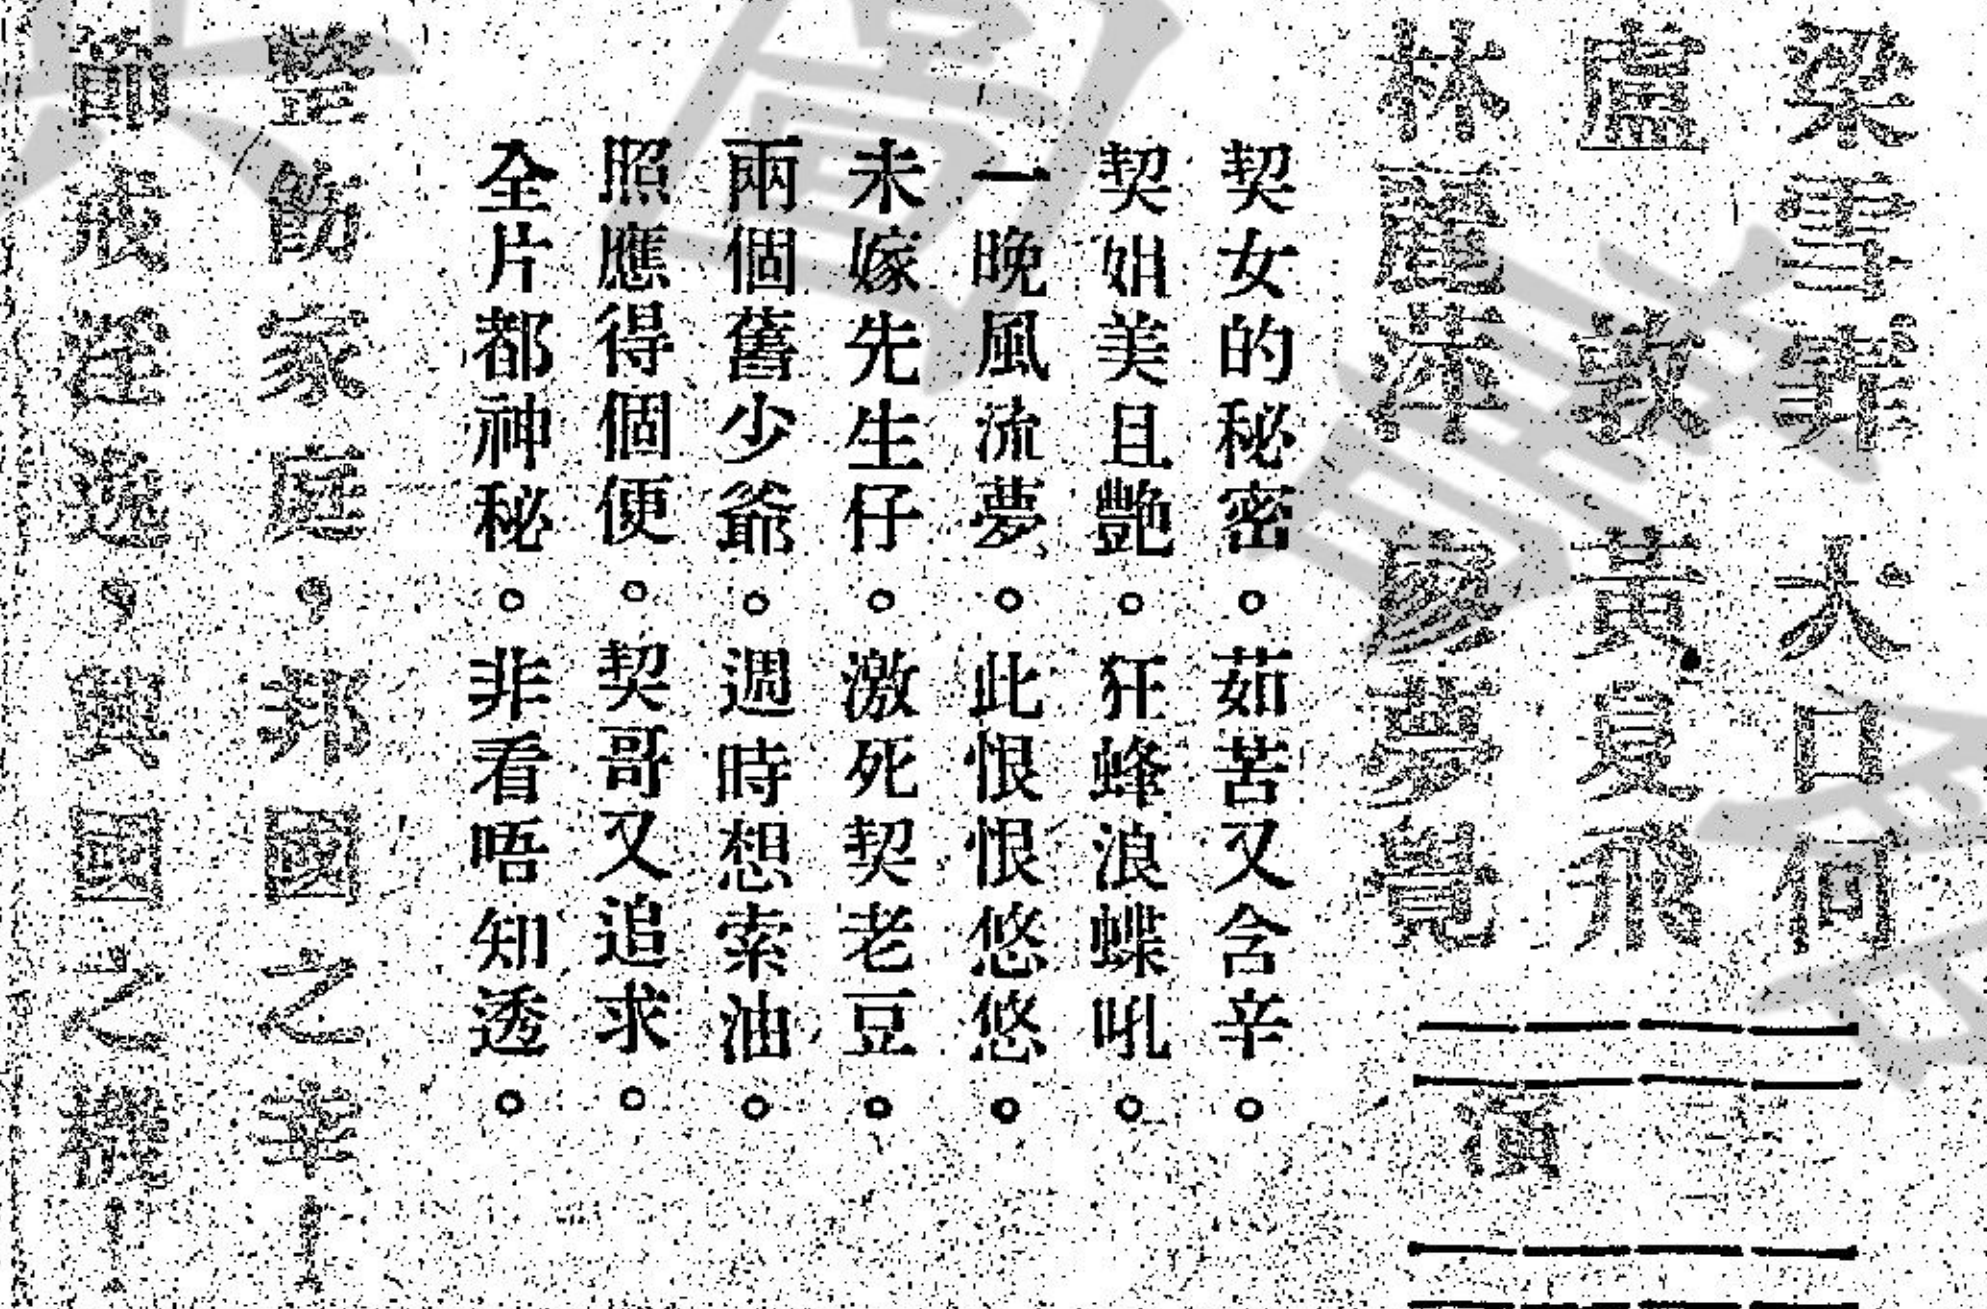 梁雪霏　大口何
盧　敦　黃夏飛
林麗萍　廖夢覺
演
契女的秘密。茹苦又含辛。
契姐美且艷。狂蜂浪蝶吼。
一晚風流夢。此恨恨悠悠。
未嫁先生仔。激死契老豆。
兩個舊少爺。週時想索油。
照應得個便。契哥又追求。
全片都神秘。非看唔知透。
整飭家庭，邦國之幸！
節戒淫逸，興國之機！